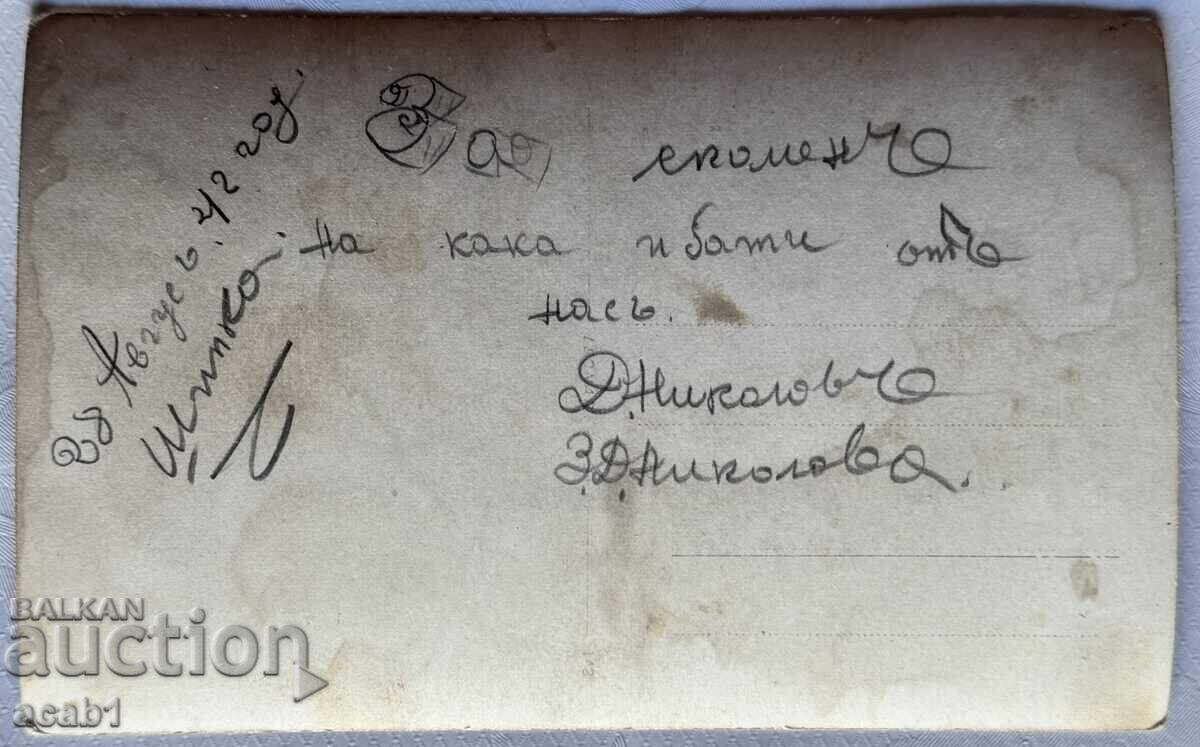 За спомен
на кака и бати отъ
насъ.
Д. Николовъ
З. Д. Николова..
28 Августъ 42 год
Шипка
BALKAN
auction
acab1